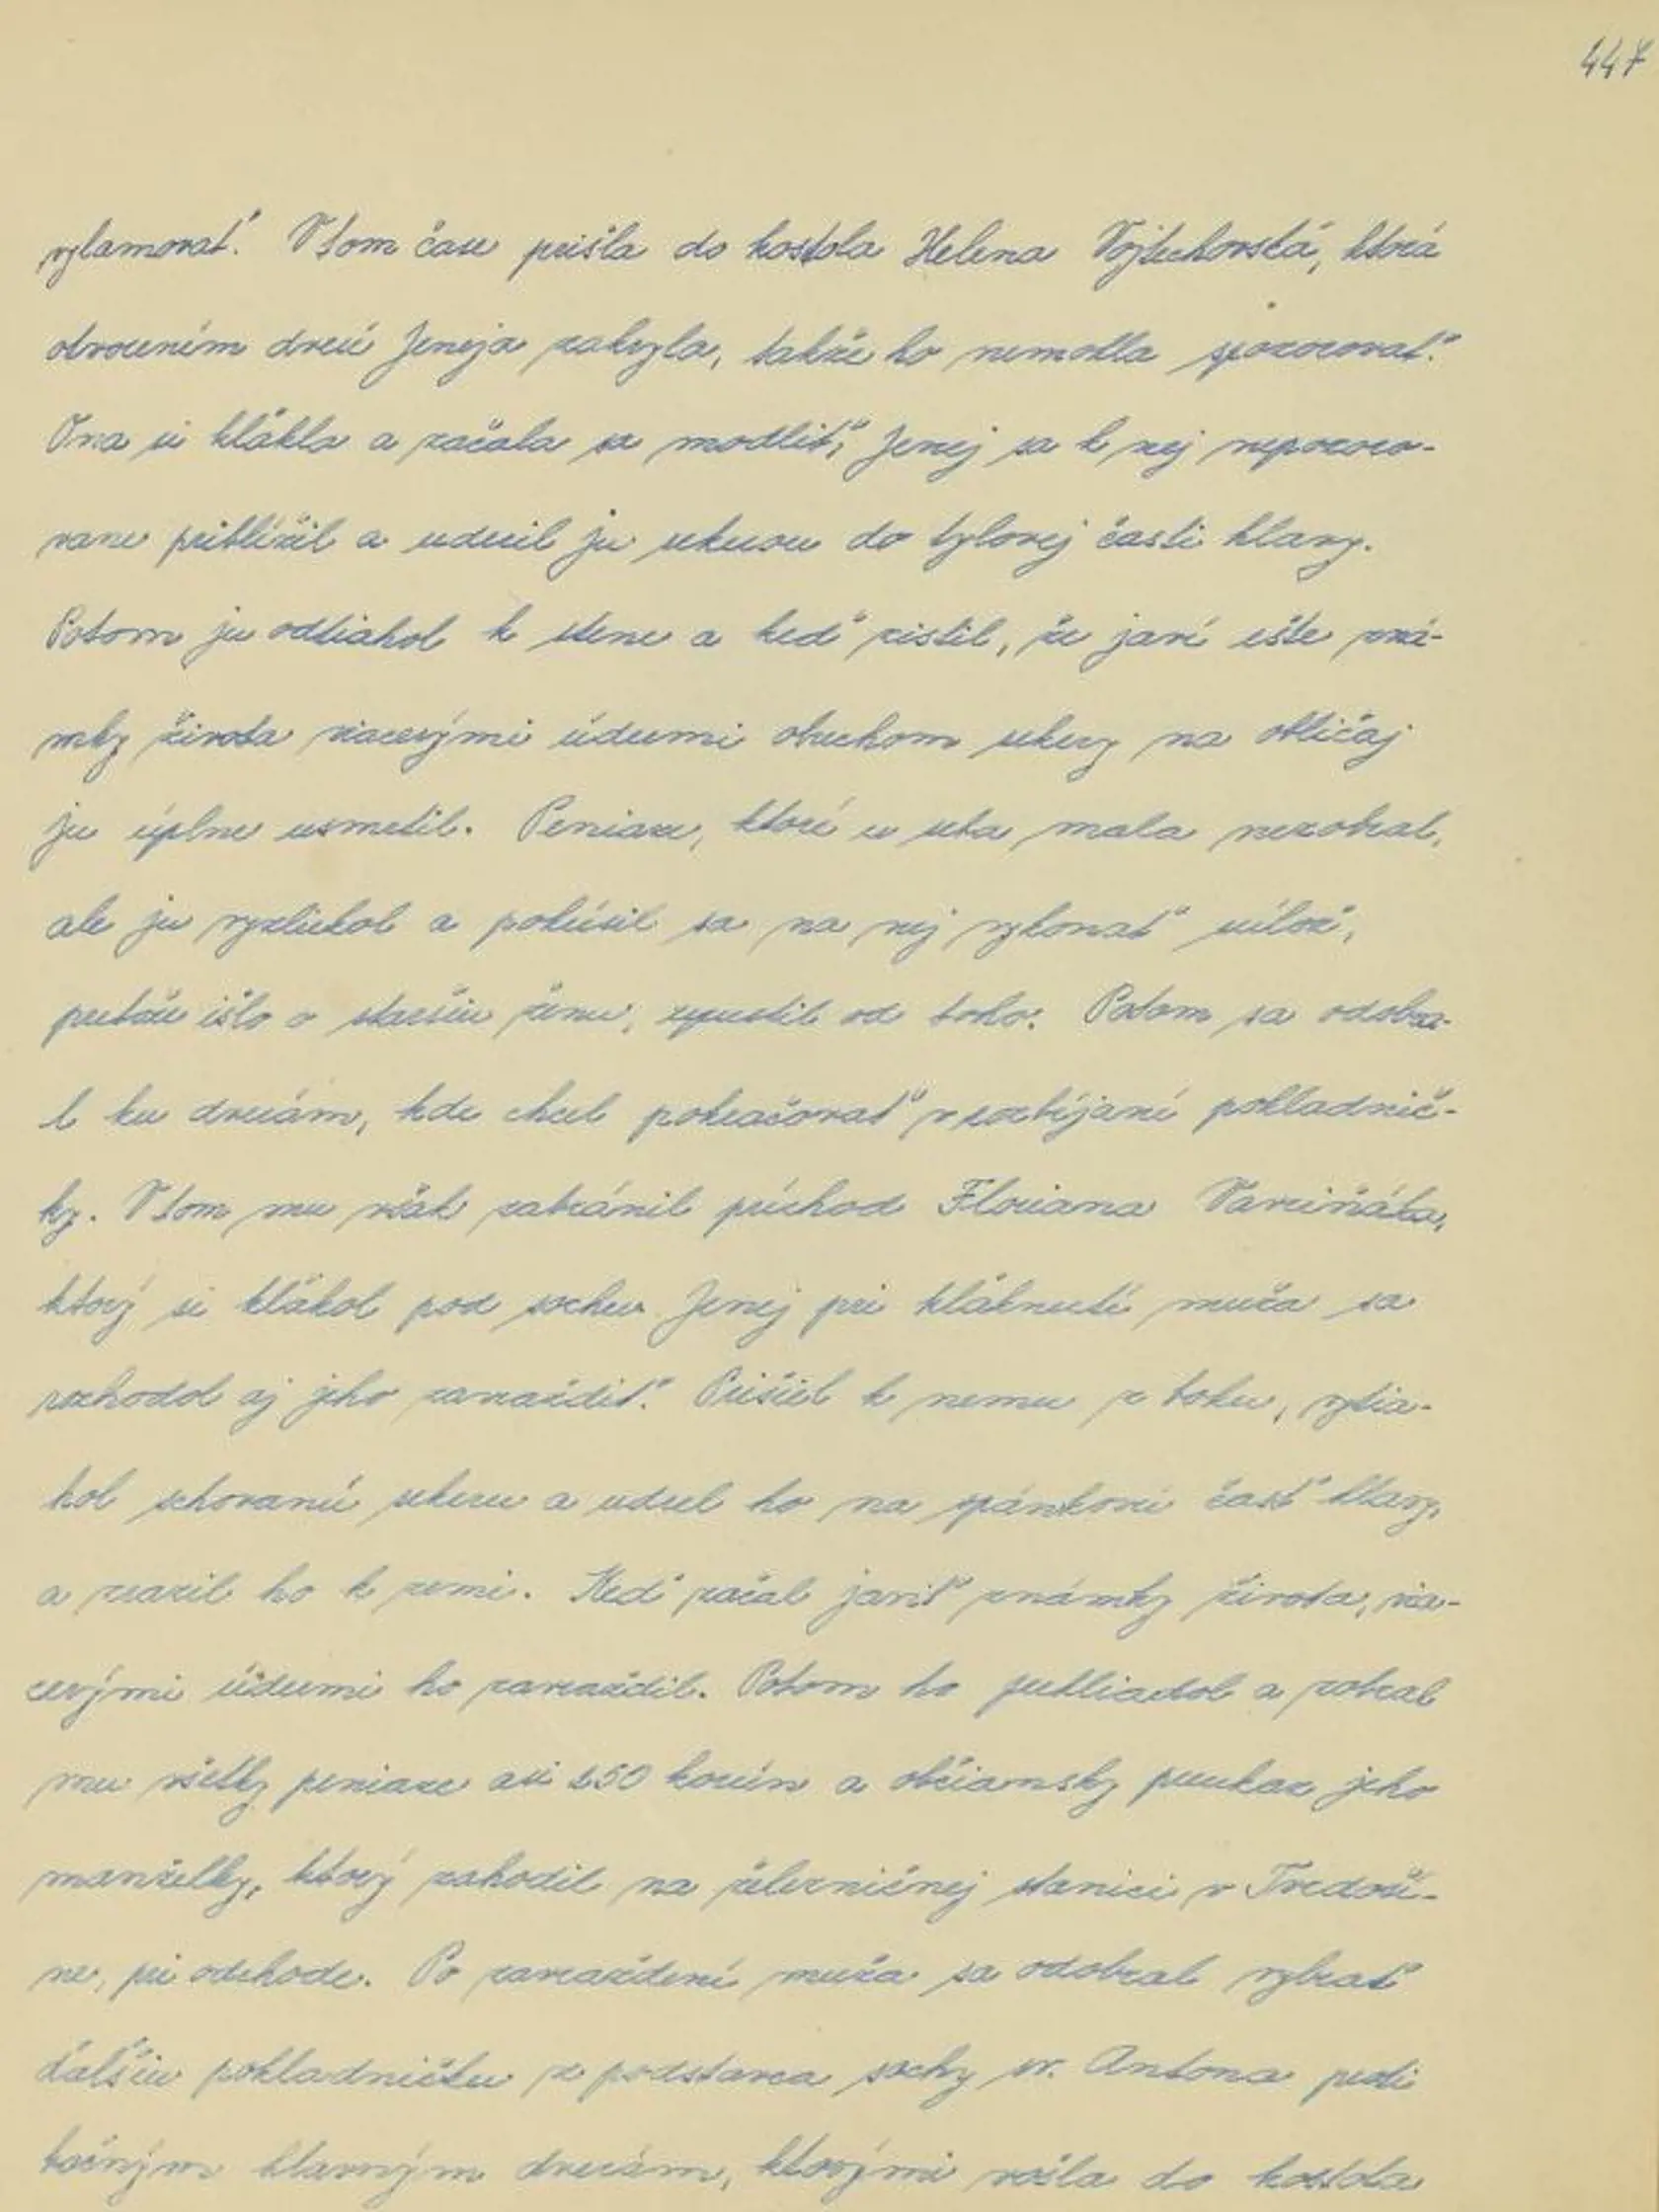 447
vylamovať. V tom čase prišla do kostola Helena Vojtechovská, ktorá
otvorením dverí Jeneja zakryla, takže ho nemohla spozorovať.
Ona si kľakla a začala sa modliť, Jenej sa k nej nepozoro-
vane priblížil a uderil ju sekerou do tylovej časti hlavy.
Potom ju odtiahol k stene a keď zistil, že javí ešte zná-
mky života viacerými údermi obuchom sekery na obličaj
ju úplne usmrtil. Peniaze, ktoré u seba mala nezobral,
ale ju vyzliekol a pokúsil sa na nej vykonať súlož,
pretože išlo o staršiu ženu, upustil od toho. Potom sa odobra-
l ku dverám, kde chcel pokračovať v rozbíjaní pokladnič-
ky. V tom mu však zabránil príchod Floriana
ktorý si kľakol pod sochu. Jenej pri kľaknutí muža sa
rozhodol aj jeho zavraždiť. Prišiel k nemu z boku, vytia-
hol schovanú sekeru a udrel ho na spánkovú časť hlavy,
a zrazil ho k zemi. Keď začal javiť známky života, via-
cerými údermi ho zavraždil. Potom ho prehliadol a zobral
mu všetky peniaze asi 250 korún a občiansky preukaz jeho
manželky, ktorý zahodil na železničnej stanici v Tvrdoší-
ne, pri odchode. Po zavraždení muža sa odobral vybrať
ďalšiu pokladničku z podstavca sochy sv. Antona proti
bočným hlavným dverám, ktorými vošla do kostola